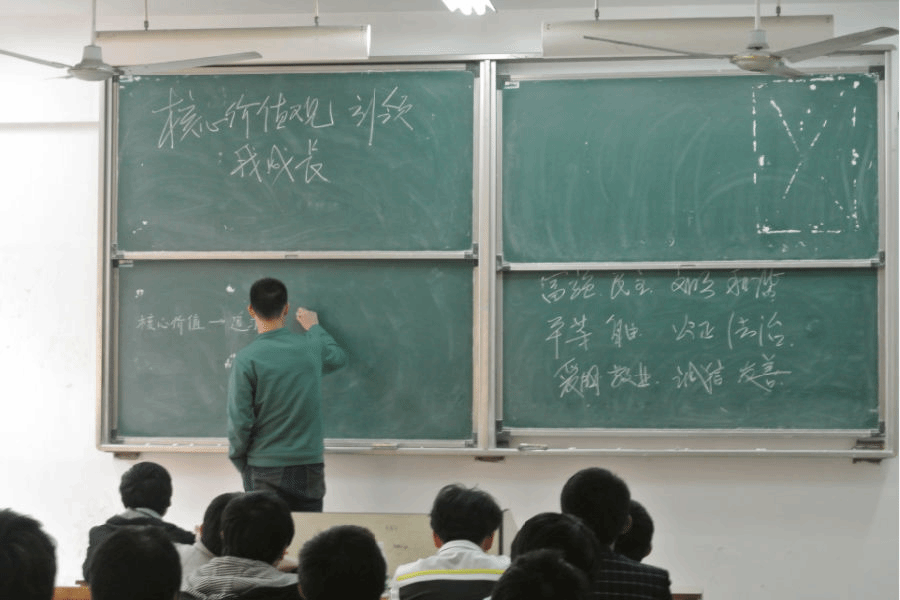 核心价值观 引领
我成长
核心价值一
富强 民主 文明 和谐
平等 自由 公正 法治
爱国 敬业 诚信 友善